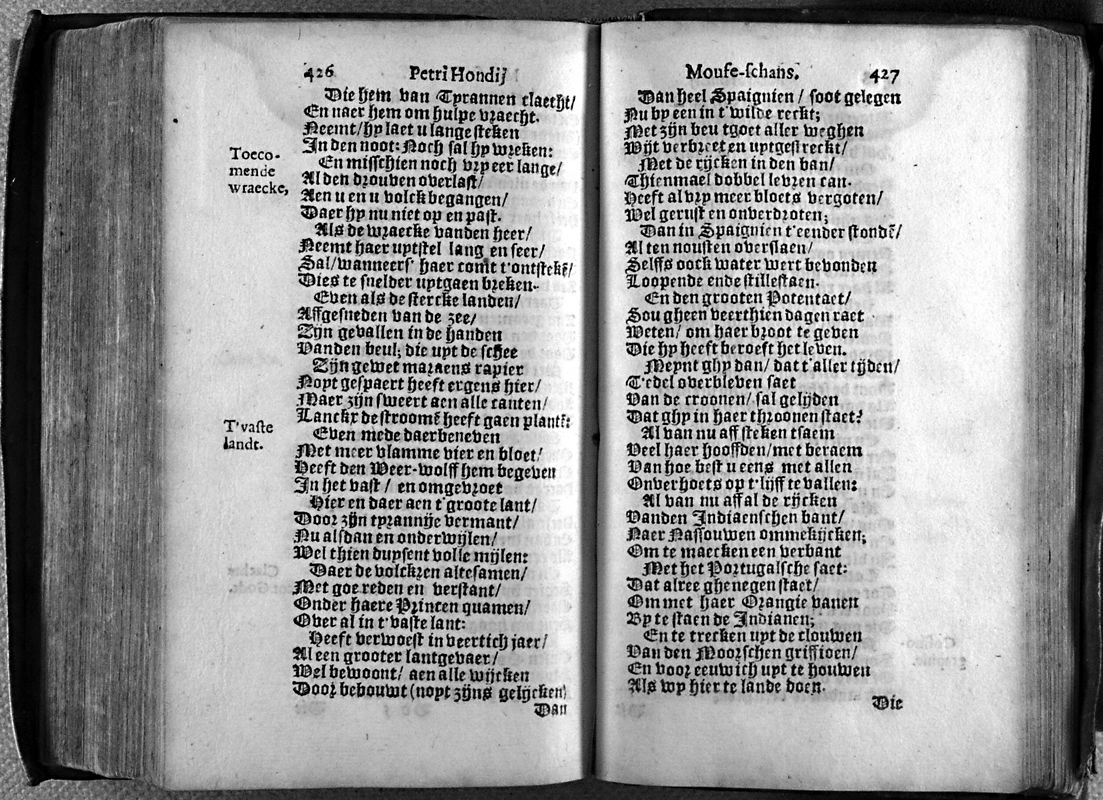 426 Petri Hondij
Die hem van Tyrannen claecht/
En naer hem om hulpe vraecht.
Neemt/hy laet u lange steken
In den noot: Noch sal hy wreken:
En misschien noch vry eer lange/
Al den drouven overlast/
Aen u en u volck begangen/
Daer hy nu niet op en past.
Als de wraecke vanden heer/
Neemt haer uytstel lang en seer/
Sal/wanneers' haer comt t'ontstekē/
Dies te snelder uytgaen breken.
Even als de stercke landen/
Affgesneden van de zee/
Zijn gevallen in de handen
Vanden beul; die uyt de schee
Zijn gewet maraens rapier
Noyt gespaert heeft ergens hier/
Maer zijn sweert aen alle canten/
Lanckx de stroomē heeft gaen plantē:
Even mede daerbeneven
Met meer vlamme vier en bloet/
Heeft den Weer-wolff hem begeven
In het vast / en omgevroet
Hier en daer aen t'groote lant/
Door zijn tyrannije vermant/
Nu alsdan en onderwijlen/
Wel thien duysent volle mijlen:
Daer de volckren altesamen/
Met goe reden en verstant/
Onder haere Princen quamen/
Over al in t'vaste lant:
Heeft verwoest in veertich jaer/
Al een grooter lantgevaer/
Wel bewoont/ aen alle wijcken
Door bebouwt (noyt zijns gelijcken)
Dan
Toeco-
mende
wraecke,
T'vaste
landt.
Moufe-schans. 427
Dan heel Spaignien / soot gelegen
Nu by een in t'wilde reckt;
Met zijn beu tgoet aller weghen
Wijt verbreet en uytgestreckt/
Met de rijcken in den ban/
Thienmael dobbel levren can.
Heeft al vry meer bloets vergoten/
Wel gerust en onverdroten;
Dan in Spaignien t'eender stondē/
Al ten nousten overslaen/
Selffs oock water wert bevonden
Loopende ende stillestaen.
En den grooten Potentaet/
Sou gheen veerthien dagen raet
Weten/ om haer broot te geven
Die hy heeft beroeft het leven.
Meynt ghy dan/ dat t'aller tijden/
T'edel overbleven saet
Van de croonen/ sal gelijden
Dat ghy in haer throonen staet?
Al van nu aff steken tsaem
Veel haer hooffden/met beraem
Van hoe best u eens met allen
Onverhoets op t'lijff te vallen:
Al van nu aff al de rijcken
Vanden Indiaenschen bant/
Naer Nassouwen ommekijcken;
Om te maecken een verbant
Met het Portugalsche saet:
Dat alree ghenegen staet/
Om met haer Orangie vanen
By te staen de Indianen;
En te trecken uyt de clouwen
Van den Moorschen griffioen/
En voor eeuwich uyt te houwen
Als wy hier te lande doen.
Die